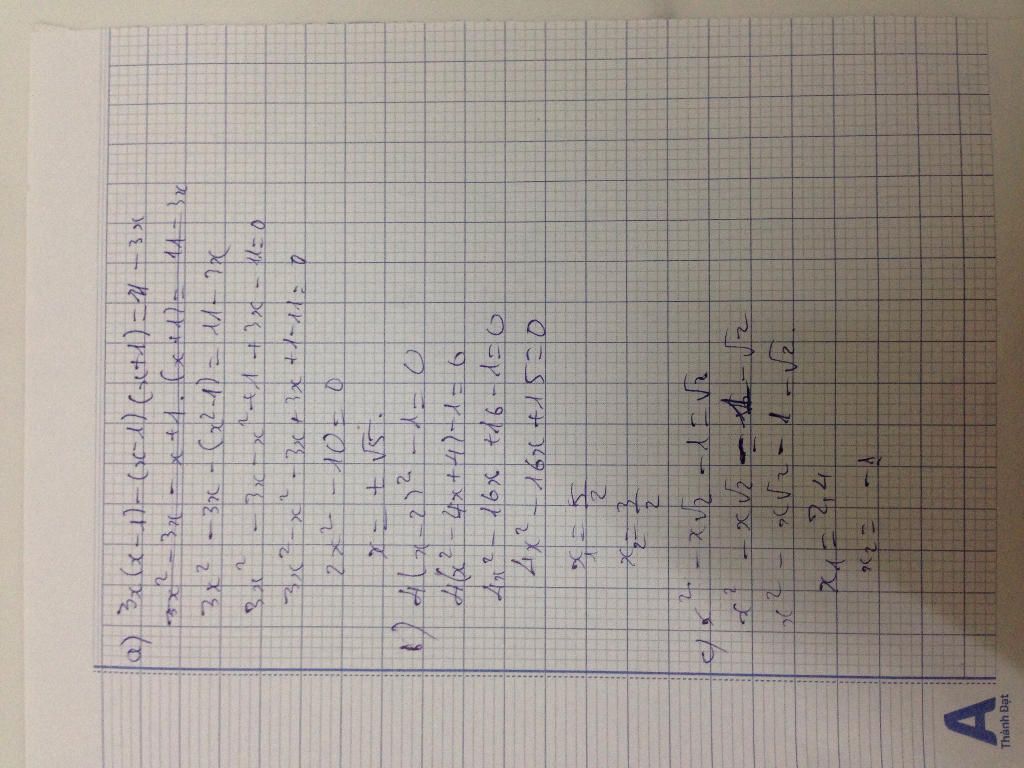 a) 3x(x-1)-(x-1)(x+1)=11-3x
3x²-3x-x+1.(x+1)=11-3x
3x²-3x-(x²-1)=11-3x
3x²-3x-x²+1+3x-11=0
3x²-x²-3x+3x+1-11=0
2x²-10=0
x=±√5.
b) 4(x-2)²-1=0
4(x²-4x+4)-1=0
4x²-16x+16-1=0
4x²-16x+15=0
x₁=5/2
x₂=3/2
c) x²-x√2-1=√2
x²-x√2-1-√2
x²-x√2-1-√2.
x₁=2,4
x₂=-1
A
Thành Đạt